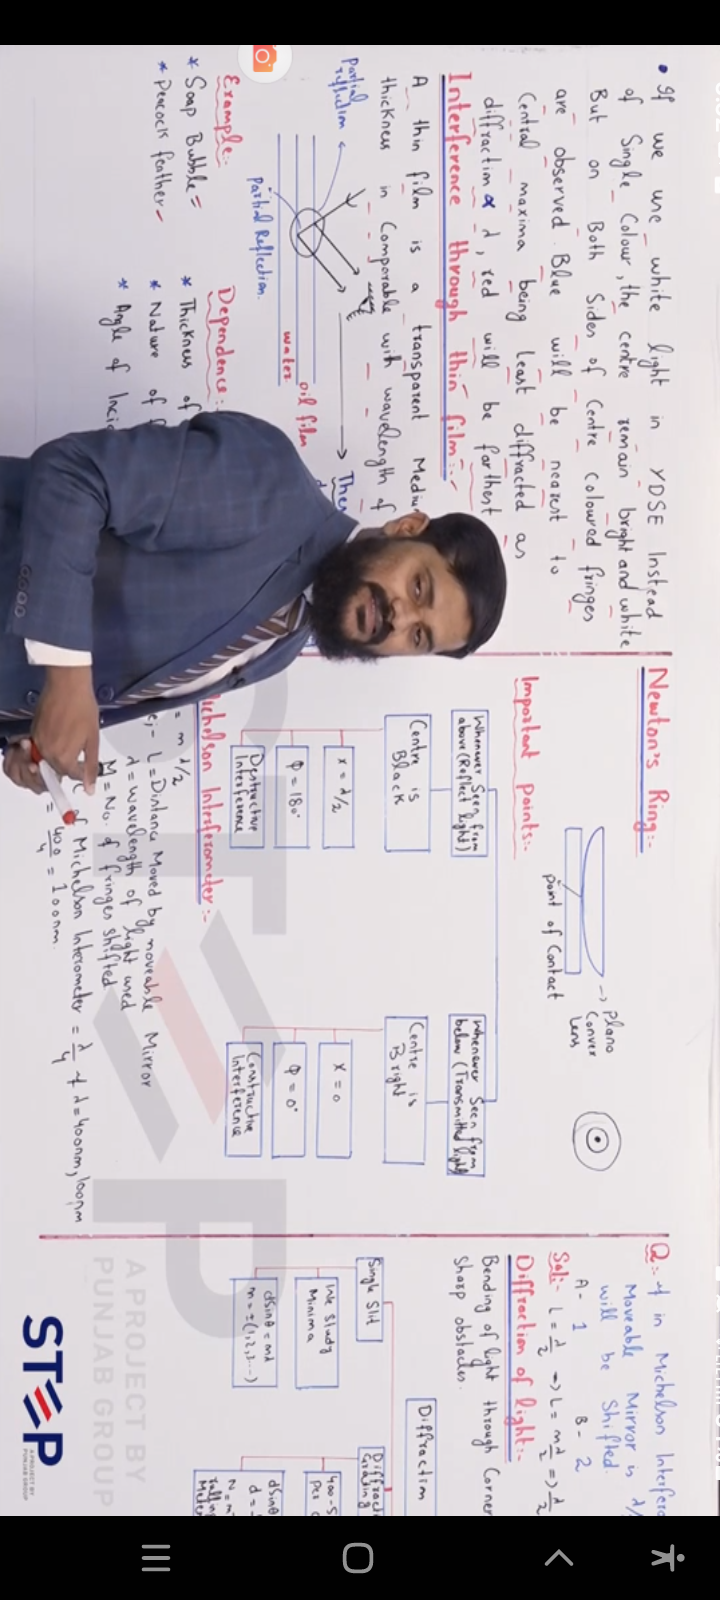 • If we use white light in YDSE Instead
of Single Colour, the centre remain bright and white
But on Both Sides of Centre coloured fringes
are observed. Blue will be nearest to
Central maxima being least diffracted as
diffraction ∝ λ, red will be farthest
Interference through thin film:-
A thin film is a transparent Mediu
thickness in Comparable with wavelength of
Partial
reflection
Partial Reflection.
oil film
water
Example:-
* Soap Bubble
* Peacock feather
Dependence:
* Thickness of
* Nature of f
* Angle of Inci
Newton's Ring:-
Plano
Convex
Lens
point of Contact
Important points:-
Whenever Seen from
above (Reflect light)
Centre is
Black
x = λ/2
Φ = 180°
Destructive
Interference
Whenever Seen from
below (Transmitted light)
Centre is
Bright
x = 0
Φ = 0°
Constructive
Interference
ichelson Interferometer:-
= m λ/2
L = Distance Moved by moveable Mirror
λ = wavelength of light used
M = No. of fringes shifted
of Michelson Interometer = λ/4 if λ = 400nm, 100nm
= 400/4 = 100nm.
Q:- If in Michelson Interfero
Moveable Mirror is λ/
will be Shifted.
A- 1 B- 2
Sol:- L = λ/2 => L = mλ/2 => λ/2
Diffraction of light:-
Bending of light through Corner
Sharp obstacles.
Diffraction
Single Slit
We Study
Minima
dSinθ = mλ
m = ±(1,2,3...)
Diffracti
Grating
400-5
per c
dSinθ
d =
STEP
A PROJECT BY
PUNJAB GROUP
STEP
A PROJECT BY
PUNJAB GROUP